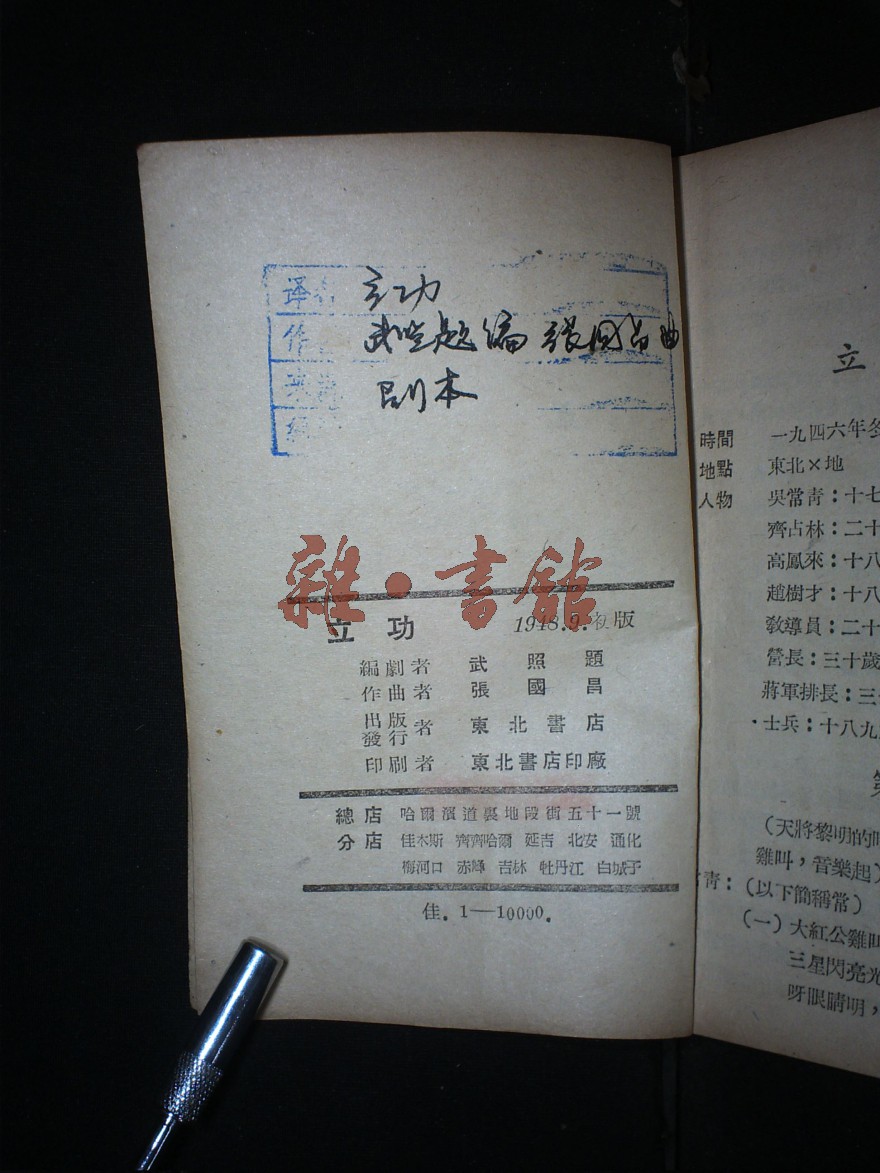 译
立功
作
武照題編 張國昌曲
剧本
雜·書館
立功 1948.9.初版
編劇者 武照題
作曲者 張國昌
出版發行者 東北書店
印刷者 東北書店印廠
總店 哈爾濱道裏地段街五十一號
分店 佳木斯 齊齊哈爾 延吉 北安 通化
梅河口 赤峰 吉林 牡丹江 白城子
佳.1—10000.
立
時間 一九四六年冬
地點 東北×地
人物 吳常青：十七
齊占林：二十
高鳳來：十八
趙樹才：十八
教導員：二十
營長：三十歲
蔣軍排長：三
士兵：十八九
第
（天將黎明的時
雞叫，音樂起）
青：（以下簡稱常）
（一）大紅公雞叫
三星閃亮光
呀眼睛明，